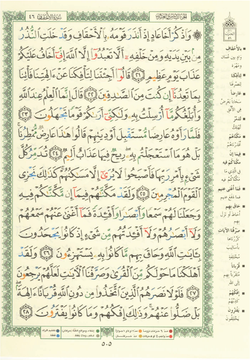 ۞ وَٱذۡكُرۡ أَخَا عَادٍ إِذۡ أَنذَرَ قَوۡمَهُۥ بِٱلۡأَحۡقَافِ وَقَدۡ خَلَتِ ٱلنُّذُرُ
مِنۢ بَيۡنِ يَدَيۡهِ وَمِنۡ خَلۡفِهِۦٓ أَلَّا تَعۡبُدُوٓاْ إِلَّا ٱللَّهَ إِنِّيٓ أَخَافُ عَلَيۡكُمۡ
عَذَابَ يَوۡمٍ عَظِيمٖ ٢١ قَالُوٓاْ أَجِئۡتَنَا لِتَأۡفِكَنَا عَنۡ ءَالِهَتِنَا فَأۡتِنَا
بِمَا تَعِدُنَآ إِن كُنتَ مِنَ ٱلصَّٰدِقِينَ ٢٢ قَالَ إِنَّمَا ٱلۡعِلۡمُ عِندَ ٱللَّهِ
وَأُبَلِّغُكُم مَّآ أُرۡسِلۡتُ بِهِۦ وَلَٰكِنِّيٓ أَرَىٰكُمۡ قَوۡمٗا تَجۡهَلُونَ ٢٣
فَلَمَّا رَأَوۡهُ عَارِضٗا مُّسۡتَقۡبِلَ أَوۡدِيَتِهِمۡ قَالُواْ هَٰذَا عَارِضٞ مُّمۡطِرُنَاۚ
بَلۡ هُوَ مَا ٱسۡتَعۡجَلۡتُم بِهِۦۖ رِيحٞ فِيهَا عَذَابٌ أَلِيمٞ ٢٤ تُدَمِّرُ كُلَّ
شَيۡءِۭ بِأَمۡرِ رَبِّهَا فَأَصۡبَحُواْ لَا يُرَىٰٓ إِلَّا مَسَٰكِنُهُمۡۚ كَذَٰلِكَ نَجۡزِي
ٱلۡقَوۡمَ ٱلۡمُجۡرِمِينَ ٢٥ وَلَقَدۡ مَكَّنَّٰهُمۡ فِيمَآ إِن مَّكَّنَّٰكُمۡ فِيهِ
وَجَعَلۡنَا لَهُمۡ سَمۡعٗا وَأَبۡصَٰرٗا وَأَفۡـِٔدَةٗ فَمَآ أَغۡنَىٰ عَنۡهُمۡ سَمۡعُهُمۡ
وَلَآ أَبۡصَٰرُهُمۡ وَلَآ أَفۡـِٔدَتُهُم مِّن شَيۡءٍ إِذۡ كَانُواْ يَجۡحَدُونَ
بِـَٔايَٰتِ ٱللَّهِ وَحَاقَ بِهِم مَّا كَانُواْ بِهِۦ يَسۡتَهۡزِءُونَ ٢٦ وَلَقَدۡ
أَهۡلَكۡنَا مَا حَوۡلَكُم مِّنَ ٱلۡقُرَىٰ وَصَرَّفۡنَا ٱلۡأٓيَٰتِ لَعَلَّهُمۡ يَرۡجِعُونَ ٢٧
فَلَوۡلَا نَصَرَهُمُ ٱلَّذِينَ ٱتَّخَذُواْ مِن دُونِ ٱللَّهِ قُرۡبَانًا ءَالِهَةَۢۖ
بَلۡ ضَلُّواْ عَنۡهُمۡۚ وَذَٰلِكَ إِفۡكُهُمۡ وَمَا كَانُواْ يَفۡتَرُونَ ٢٨
٥٠٥